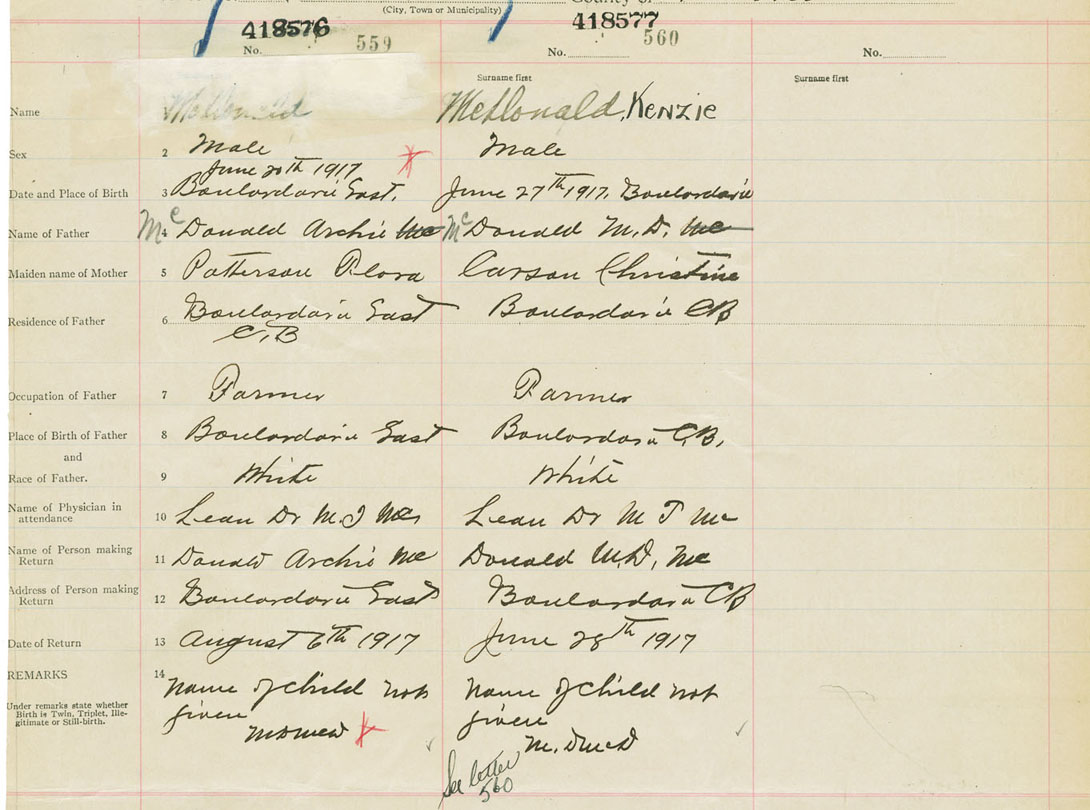 (City, Town or Municipality)
418576 418577
No. 559 No. 560 No.
Surname first Surname first
Name McDonald McDonald, Kenzie
Sex 2 Male Male
June 20th 1917
Date and Place of Birth 3 Boulardarie East. June 27th 1917. Boulardarie
Name of Father 4 Mc Donald Archie Mc Mc Donald M. D. Mc
Maiden name of Mother 5 Patterson Flora Carson Christine
Residence of Father 6 Boulardarie East Boulardarie CB
C.B
Occupation of Father 7 Farmer Farmer
Place of Birth of Father 8 Boulardarie East Boulardarie C.B.
and
Race of Father. 9 White White
Name of Physician in
attendance 10 Lean Dr M. J Mc Lean Dr M J Mc
Name of Person making
Return 11 Donald Archie Mc Donald M.D. Mc
Address of Person making
Return 12 Boulardarie East Boulardarie CB
Date of Return 13 August 6th 1917 June 28th 1917
REMARKS 14 Name of child not Name of child not
Under remarks state whether
Birth is Twin, Triplet, Ille-
gitimate or Still-birth.
given given
M. D McD
See letter
560